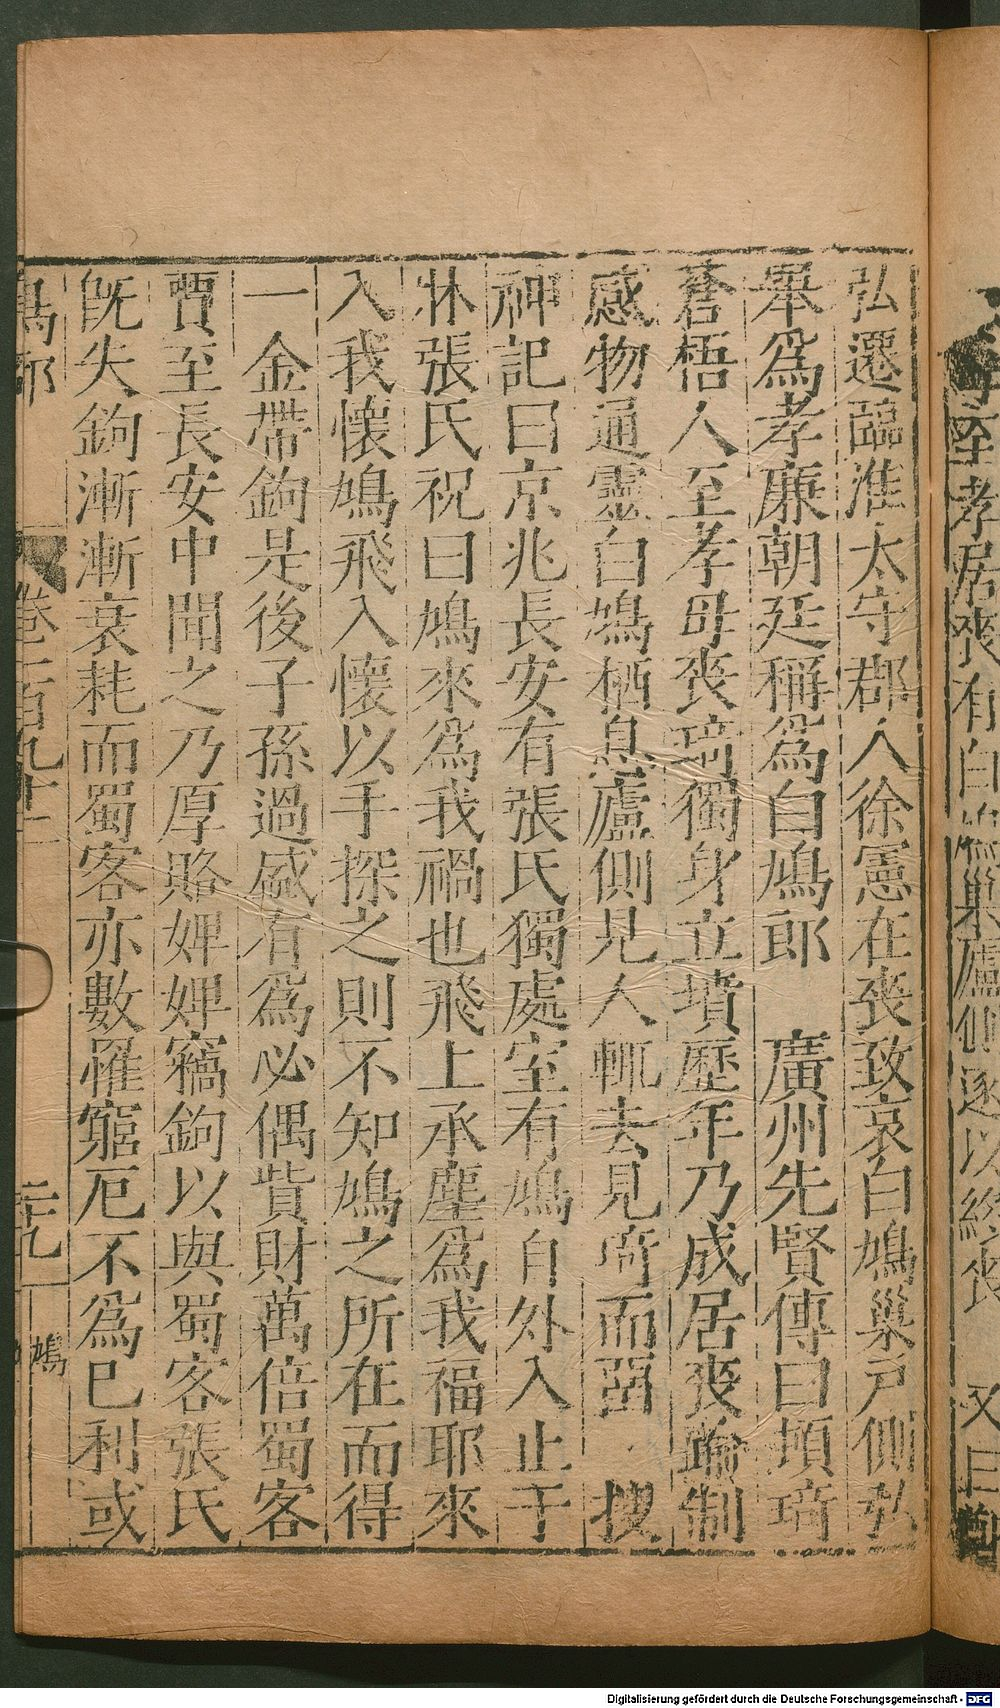 至孝居喪有白鳩巢廬側遂以終喪　又曰鄭
弘遷臨淮太守郡人徐憲在喪致哀白鳩巢戶側弘
舉爲孝廉朝廷稱爲白鳩郎　廣州先賢傳曰頓琦
蒼梧人至孝母喪琦獨身立墳歷年乃成居喪踰制
感物通靈白鳩栖息廬側見人輒去見琦而留　搜
神記曰京兆長安有張氏獨處室有鳩自外入止于
牀張氏祝曰鳩來爲我禍也飛上承塵爲我福耶來
入我懷鳩飛入懷以手探之則不知鳩之所在而得
一金帶鉤是後子孫過盛有爲必偶貲財萬倍蜀客
賈至長安中聞之乃厚賂婢婢竊鉤以與蜀客張氏
旣失鉤漸漸衰耗而蜀客亦數罹窮厄不爲己利或
鳥部　卷九十二　二九　鳩
Digitalisierung gefördert durch die Deutsche Forschungsgemeinschaft - DFG